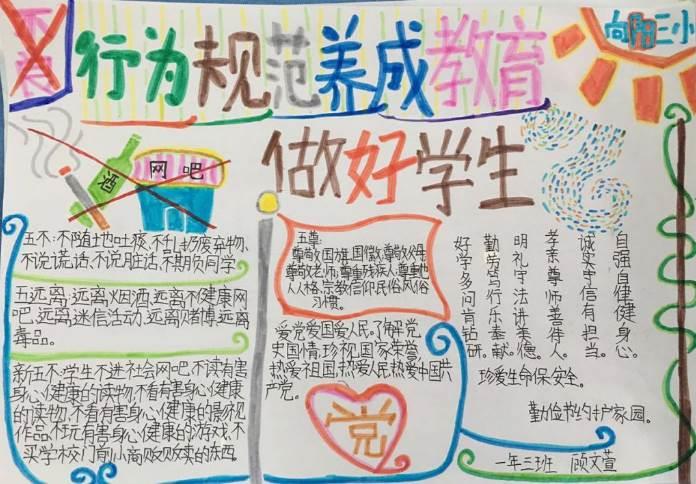 不良
行为规范养成教育
向阳三小
做好学生
酒
网吧
五不:不随地吐痰、不乱扔废弃物、
不说谎话、不说脏话、不欺负同学。
五远离,远离烟酒、远离不健康网
吧、远离迷信活动、远离赌博、远离
毒品。
新五不:学生不进社会网吧、不读有害
身心健康的读物、不看有害身心健康
的读物、不看有害身心健康的影视
作品、不玩有害身心健康的游戏、不
买学校门前小商贩贩卖的东西。
五尊:
尊敬国旗、国徽、尊敬父母
尊敬老师、尊重残疾人、尊重他
人人格、宗教信仰、民俗风俗
习惯。
爱党爱国爱人民。了解党
史国情,珍视国家荣誉,
热爱祖国,热爱人民,热爱中国共
产党。
党
自强自健健身心。
诚实守信有担当。
孝亲尊师善待人。
明礼守法讲美德。
勤劳笃行乐奉献。
好学多问肯钻研。
珍爱生命保安全。
勤俭节约护家园。
一年三班 顾文萱